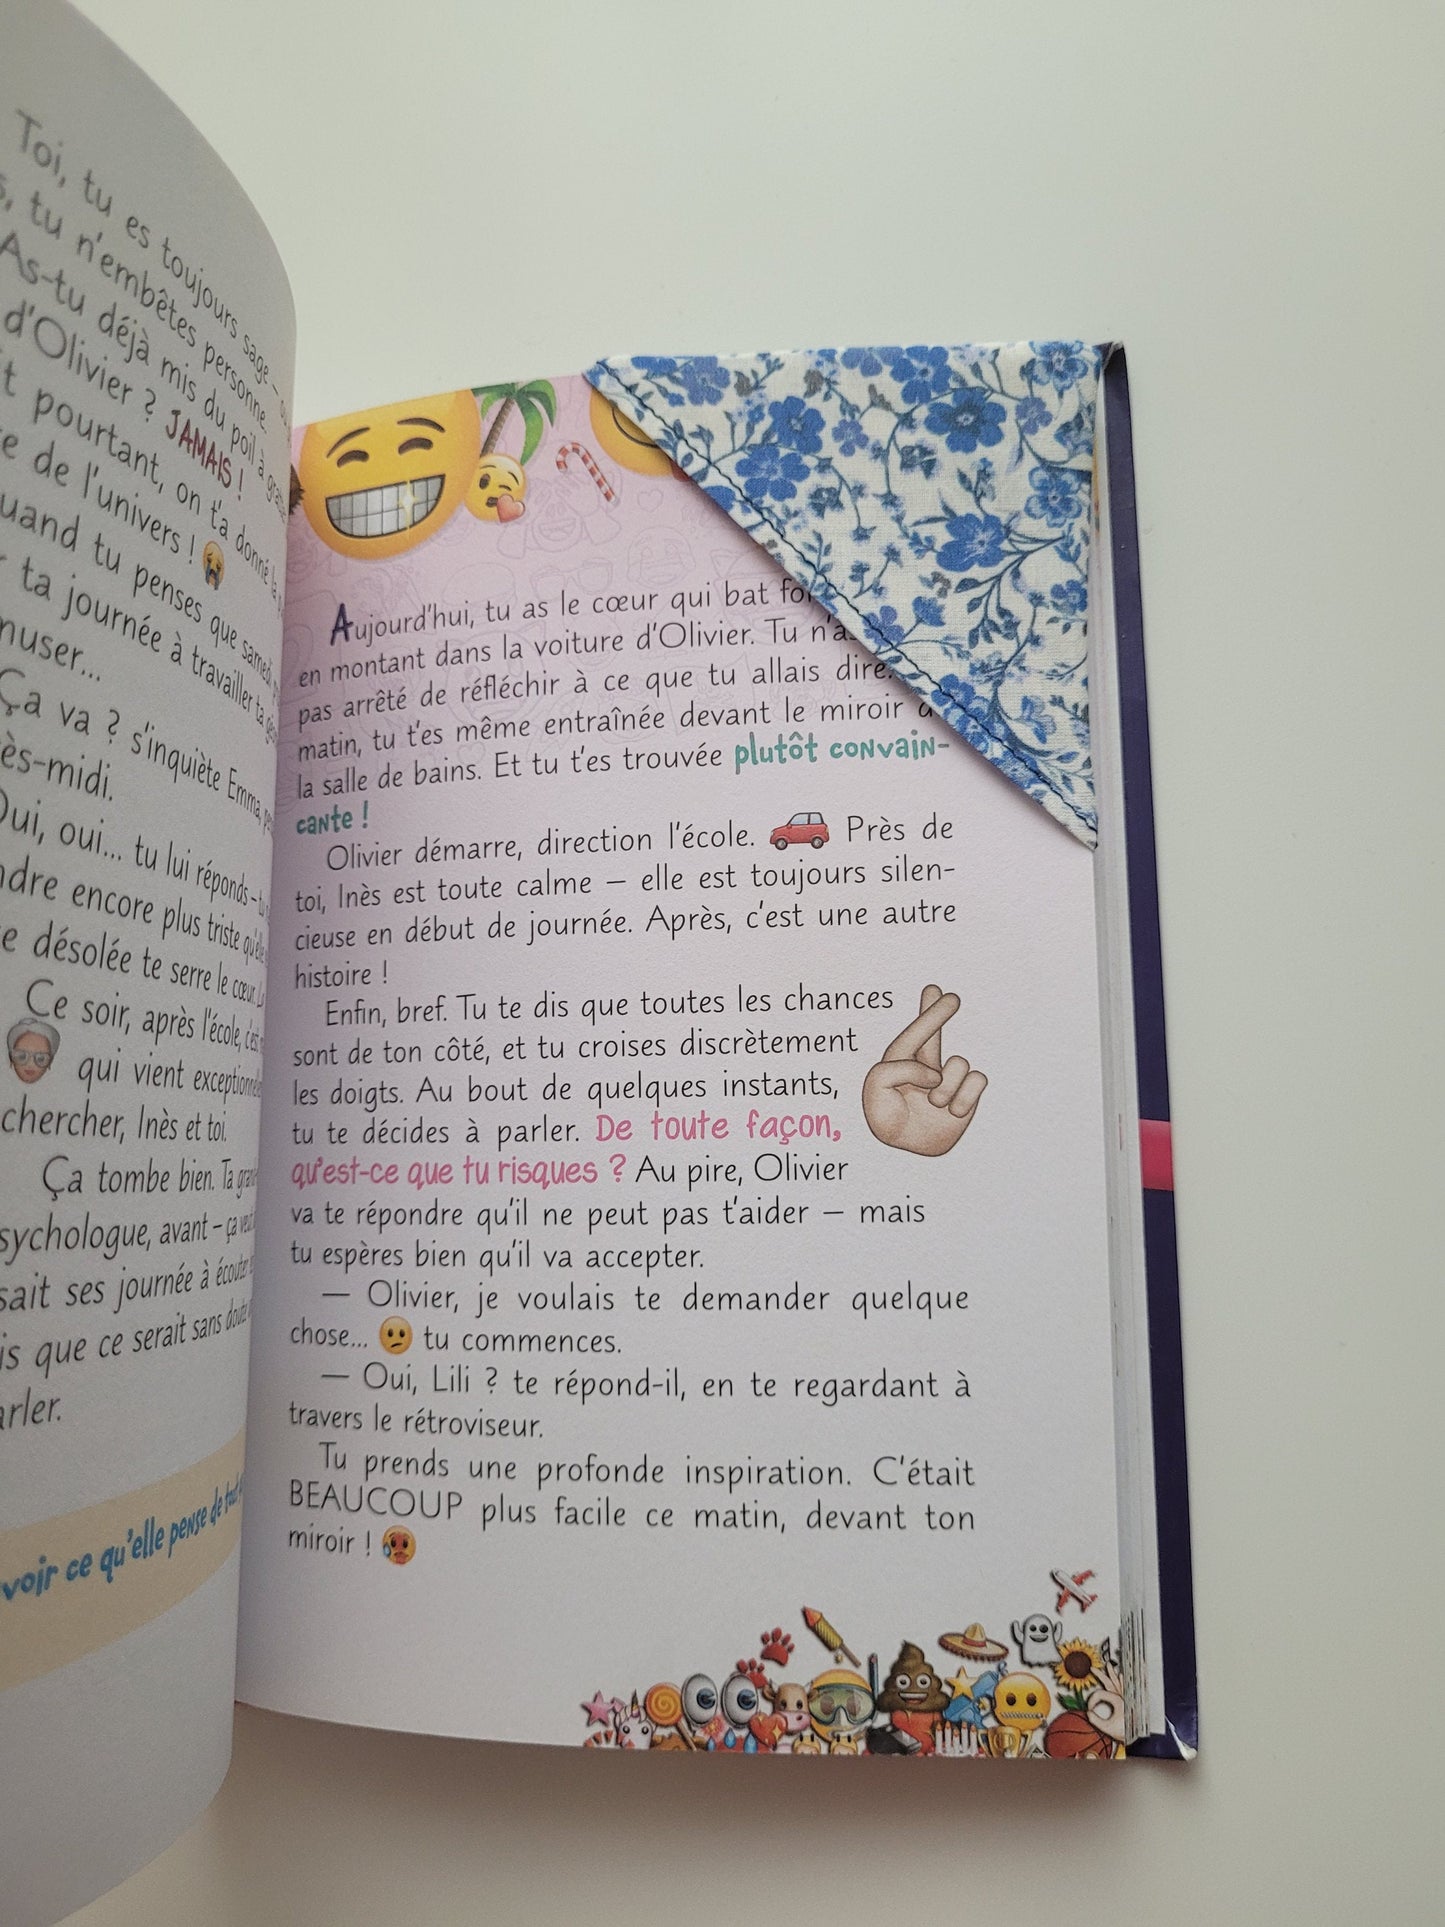 Toi, tu es toujours sage –
tu n'embêtes personne.
As-tu déjà mis du poil à
d'Olivier ? JAMAIS !
pourtant, on t'a donné la
de l'univers !
tu penses que samedi
ta journée à travailler ta
Ça va ? s'inquiète Emma,
oui... tu lui réponds –
encore plus triste qu'elle
désolée te serre le cœur.
Ce soir, après l'école,
qui vient
chercher, Inès et toi.
Ça tombe bien. Ta
avant – ça
ses journée à
que ce serait sans doute
ce qu'elle pense de tout
Aujourd'hui, tu as le cœur qui bat
en montant dans la voiture d'Olivier. Tu
pas arrêté de réfléchir à ce que tu allais dire.
matin, tu t'es même entraînée devant le miroir
la salle de bains. Et tu t'es trouvée plutôt convain-
cante !
Olivier démarre, direction l'école. Près de
toi, Inès est toute calme – elle est toujours silen-
cieuse en début de journée. Après, c'est une autre
histoire !
Enfin, bref. Tu te dis que toutes les chances
sont de ton côté, et tu croises discrètement
les doigts. Au bout de quelques instants,
tu te décides à parler. De toute façon,
qu'est-ce que tu risques ? Au pire, Olivier
va te répondre qu'il ne peut pas t'aider – mais
tu espères bien qu'il va accepter.
— Olivier, je voulais te demander quelque
chose... tu commences.
— Oui, Lili ? te répond-il, en te regardant à
travers le rétroviseur.
Tu prends une profonde inspiration. C'était
BEAUCOUP plus facile ce matin, devant ton
miroir !